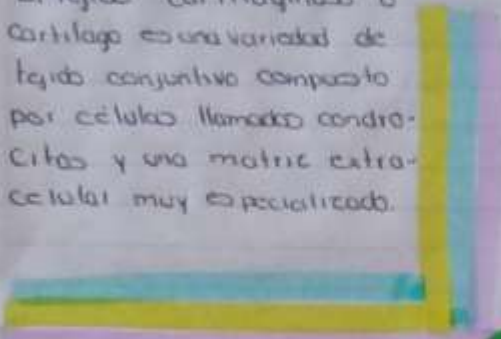 cartilago es una variedad de
tejido conjuntivo compuesto
por células llamadas condro-
citos y una matriz extra-
celular muy especializado.